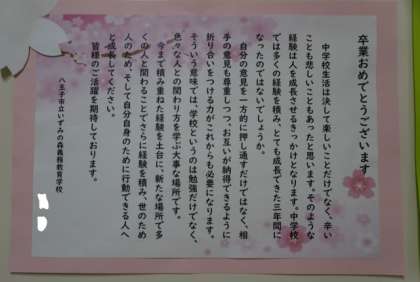 卒業おめでとうございます
中学校生活は決して楽しいことだけでなく、辛い
ことも悲しいこともあったと思います。そのような
経験は人を成長させるきっかけとなります。中学校
では多くの経験を積み、とても成長できた三年間に
なったのではないでしょうか。
自分の意見を一方的に押し通すだけではなく、相
手の意見も尊重しつつ、お互いが納得できるように
折り合いをつける力がこれからも必要になります。
そういう意味では、学校というのは勉強だけでなく、
色々な人との関わり方を学ぶ大事な場所です。
今まで積み重ねた経験を土台に、新たな場所で多
くの人と関わることでさらに経験を積み、世のため
人のため、そして自分自身のために行動できる人へ
と成長してください。
皆様のご活躍を期待しております。
八王子市立いずみの森義務教育学校